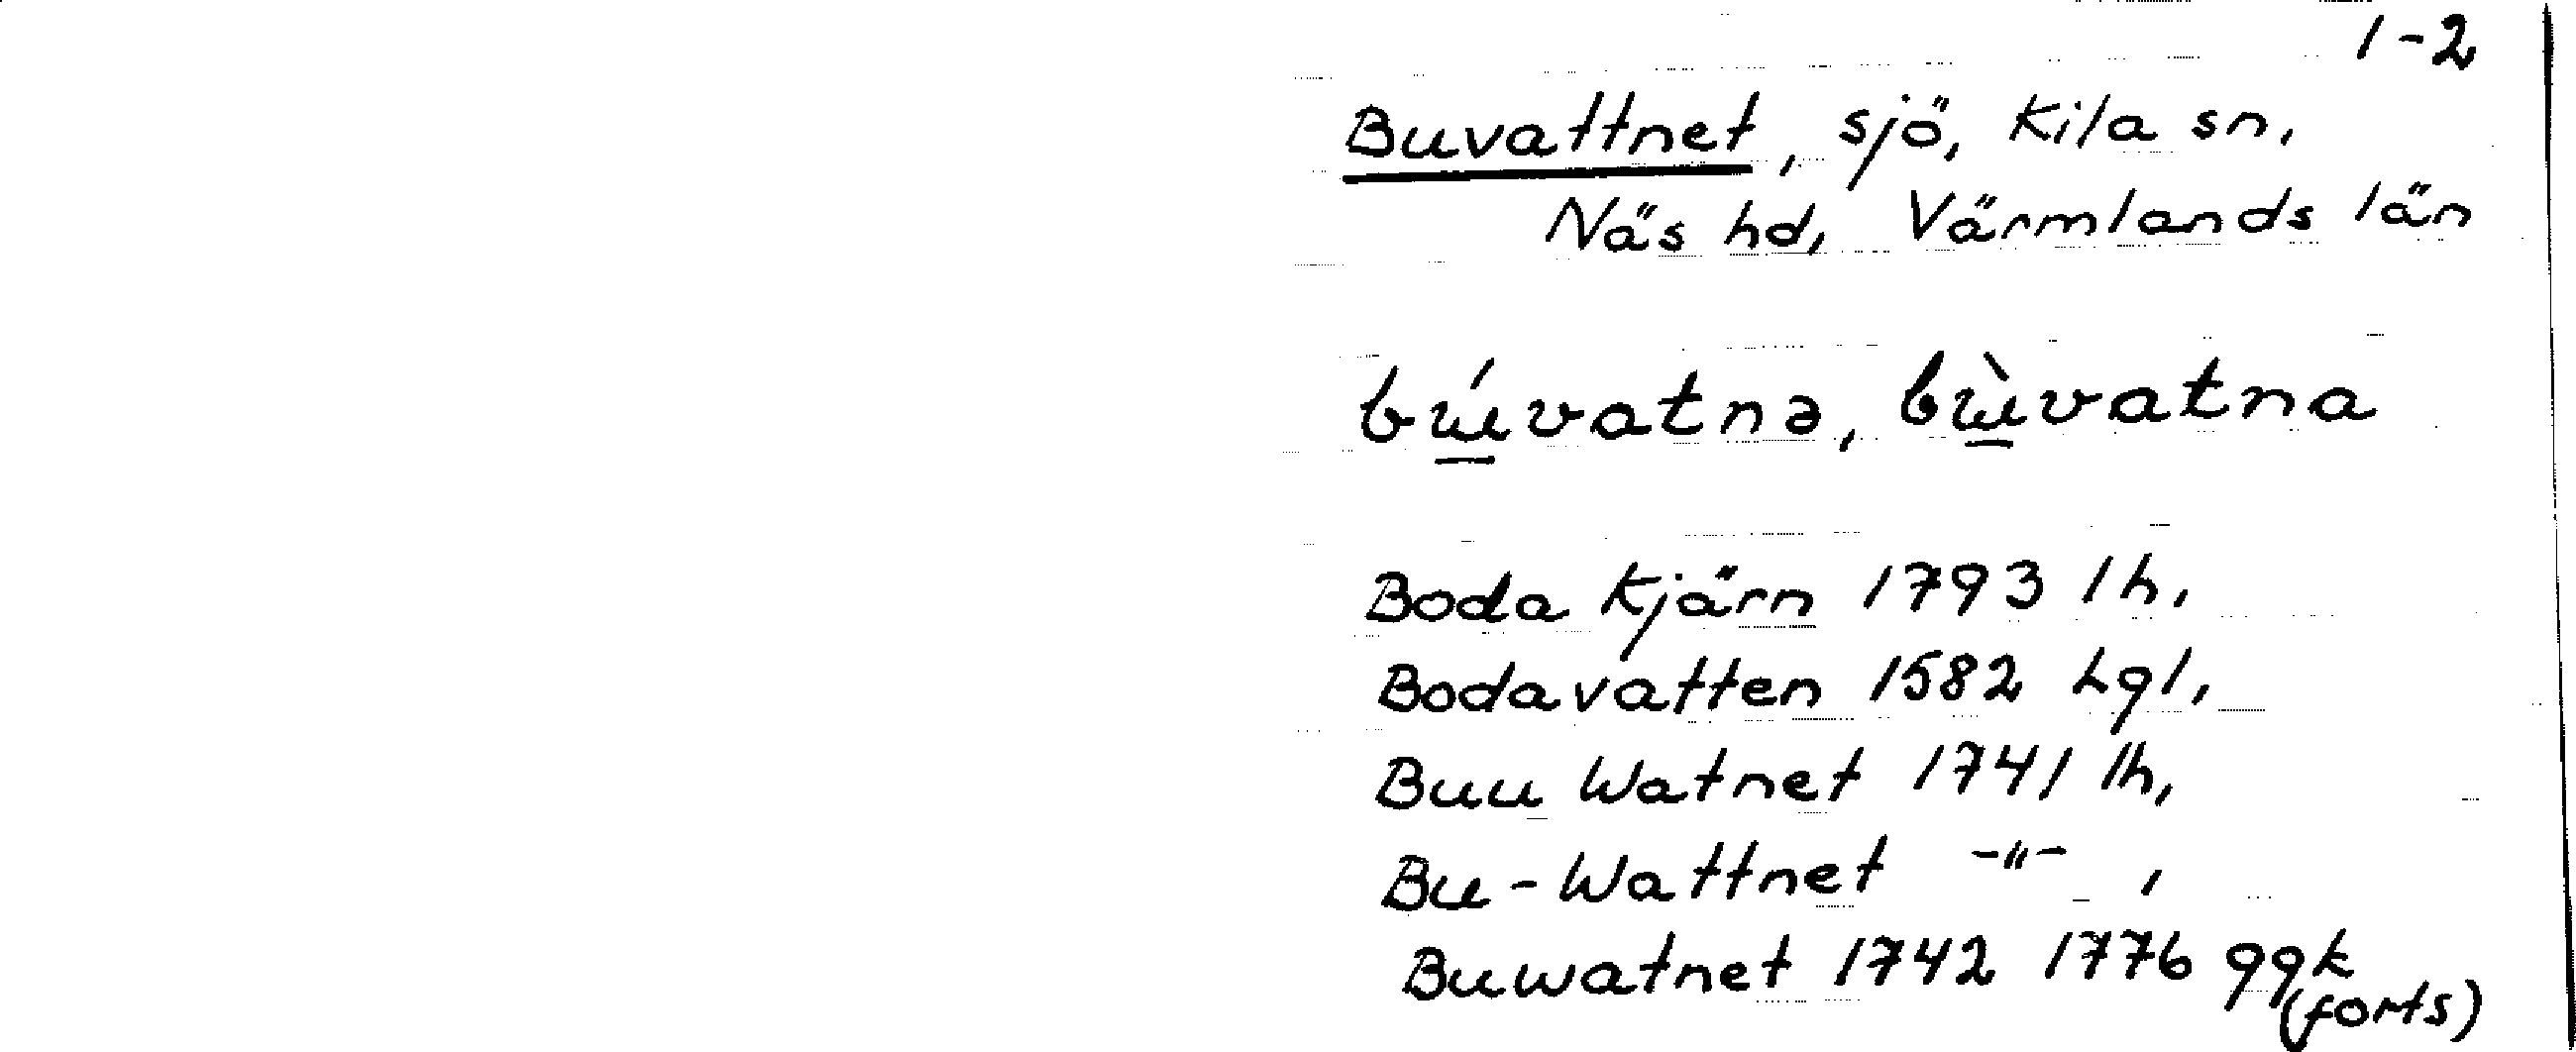 1-2
Buvattnet, sjö, Kila sn,
Näs hd, Värmlands län
bɯ́vatnə, bɯ̀vatna
Boda Kjärn 1793 lh,
Bodavatten 1582 hgl,
Buu Watnet 1741 lh,
Bu-Wattnet -"- ,
Buwatnet 1742 1776 ggk
(forts)